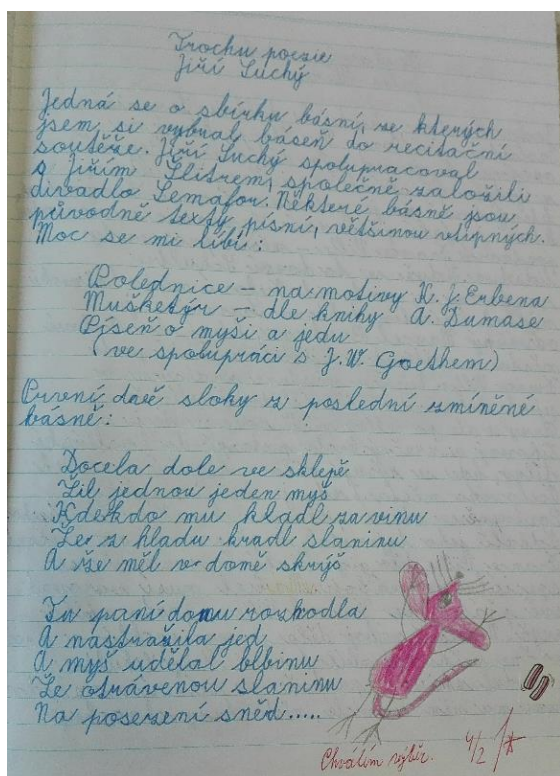 Trochu poezie
Jiří Suchý
Jedná se o sbírku básní, ze kterých
jsem si vybral báseň do recitační
soutěže. Jiří Suchý spolupracoval
s Jiřím Šlitrem, společně založili
divadlo Semafor. Některé básně jsou
původně texty písní, většinou vtipných.
Moc se mi líbí:
Polednice – na motivy K. J. Erbena
Mušketýr – dle knihy A. Dumase
Píseň o myši a jedu
(ve spolupráci s J. W. Goethem)
První dvě sloky z poslední zmíněné
básně:
Docela dole ve sklepě
Žil jednou jeden myš
Kdekdo mu kladl za vinu
Že z hladu kradl slaninu
A že měl v domě skrýš
Tu paní domu rozhodla
A nastražila jed
A myš udělal blbinu
Že otrávenou slaninu
Na posezení sněd.....
Chválím výběr. 4/2